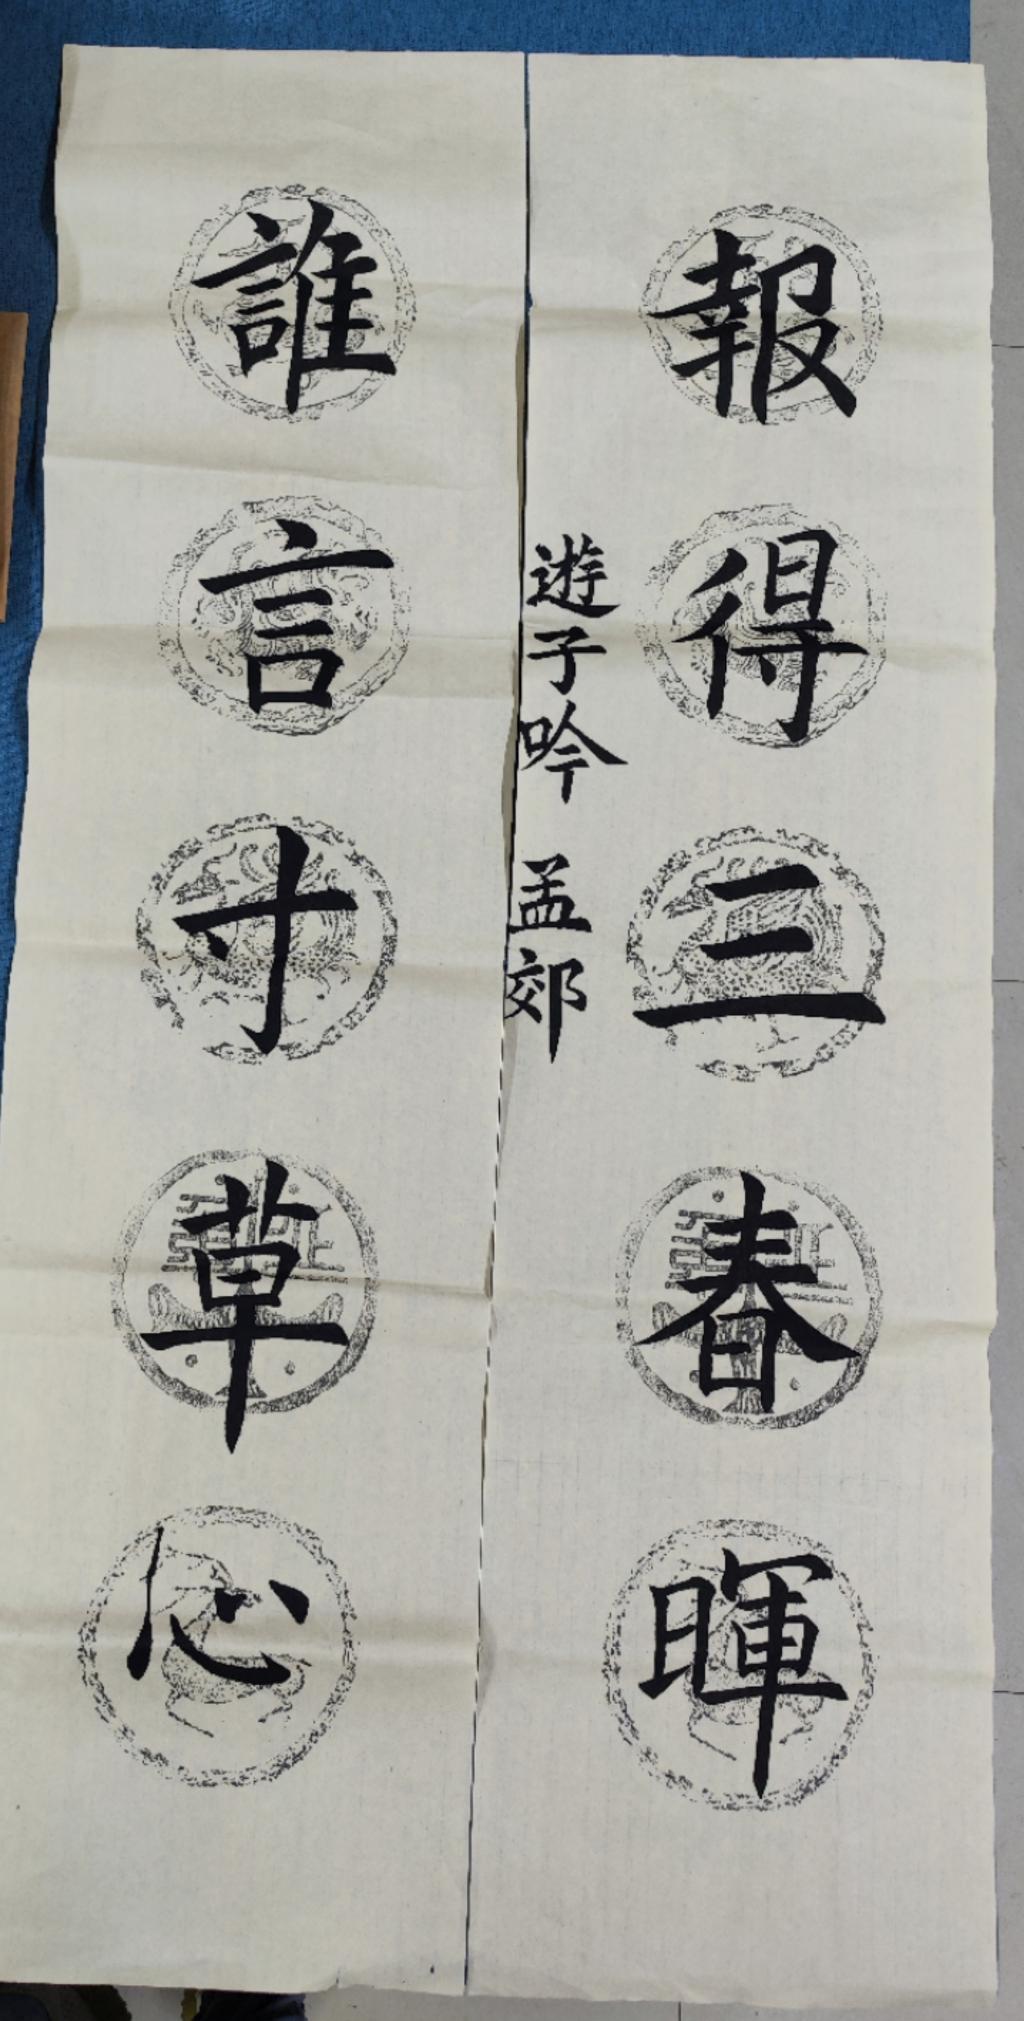 報得三春暉
遊子吟 孟郊
誰言寸草心